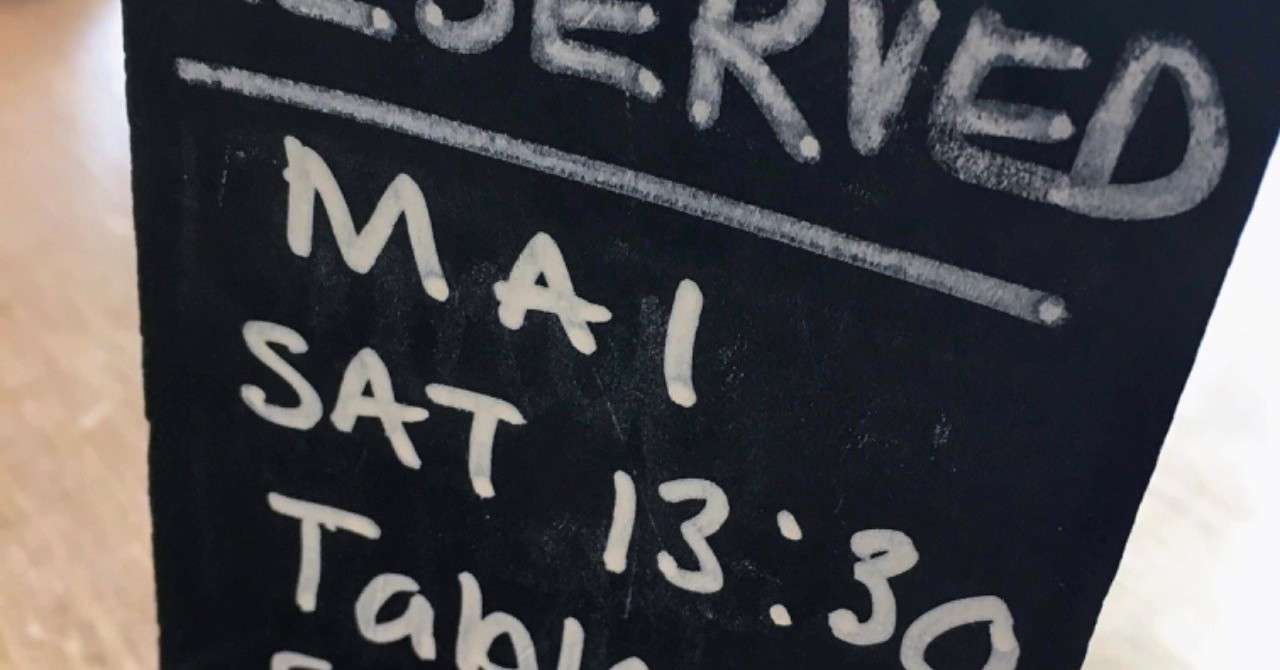 RESERVED
MAI
SAT 13:30
Table